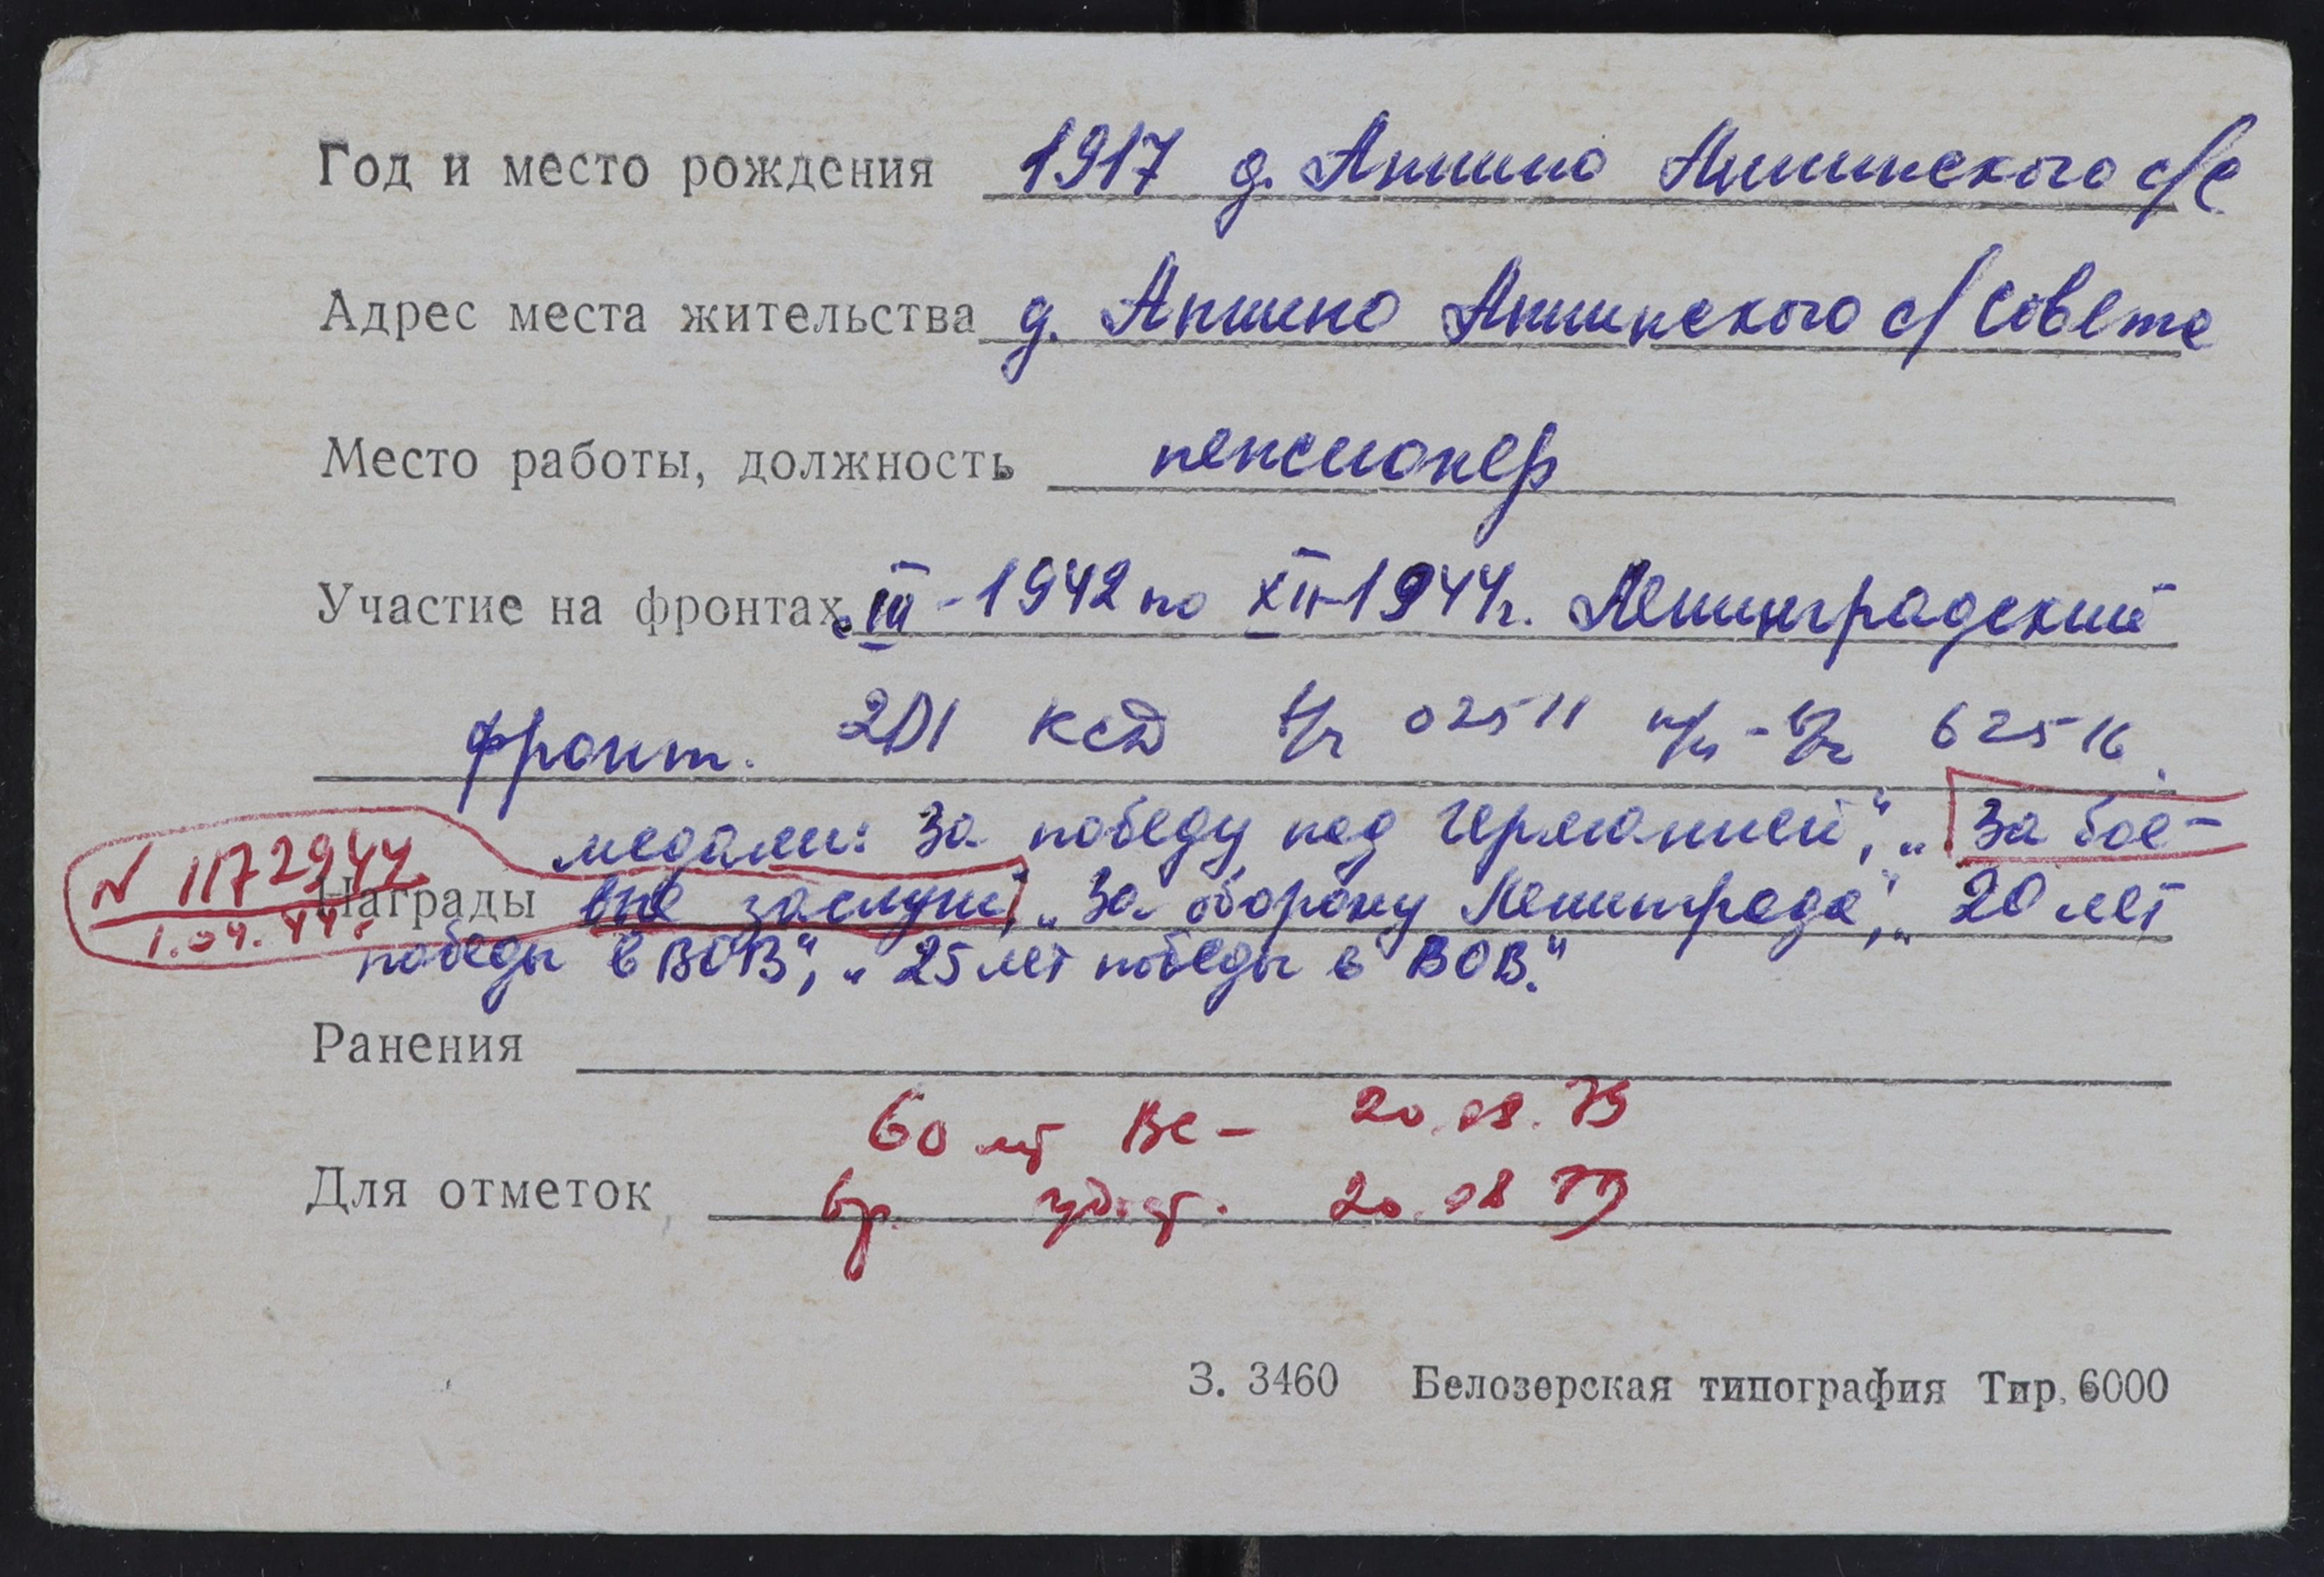 Год и место рождения 1917 д. Анашино Анашинского с/с
Адрес места жительства д. Анашино Анашинского с/Совета
Место работы, должность пенсионер
Участие на фронтах с III-1942 по XII-1944г. Ленинградский
фронт. 201 КСД в/ч 02511 п/п - в/ч 62516.
медали: За победу над Германией", „За бое-
N 1172944
Награды вые заслуги, „За оборону Ленинграда", „20 лет
1.04.44г.
победы в ВОВ", „25 лет победы в ВОВ."
Ранения
60 лет ВС - 20.08.79
Для отметок вр. удост. 20.08 79
З. 3460 Белозерская типография Тир. 6000